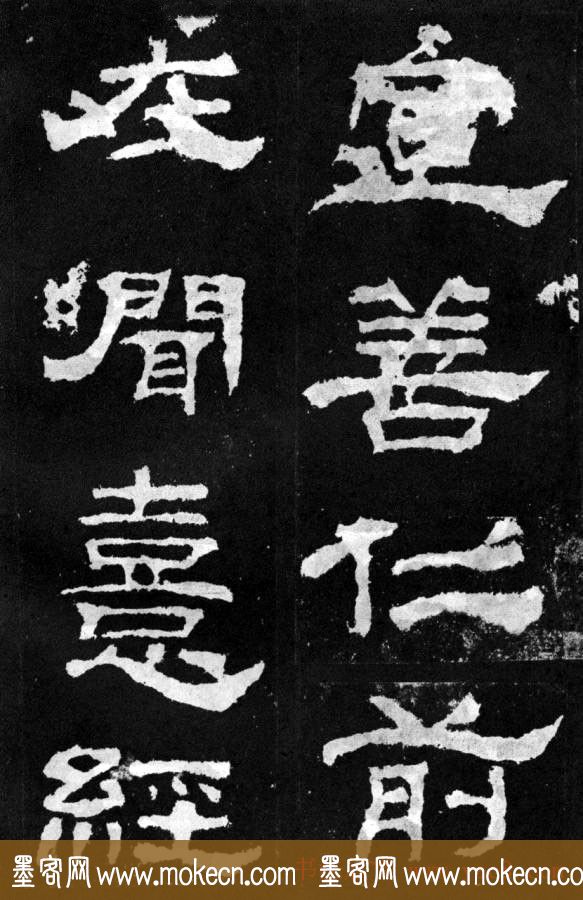 宣善仁前
聞憙經
墨客网 www.mokecn.com 书 墨客网 www.mokecn.com